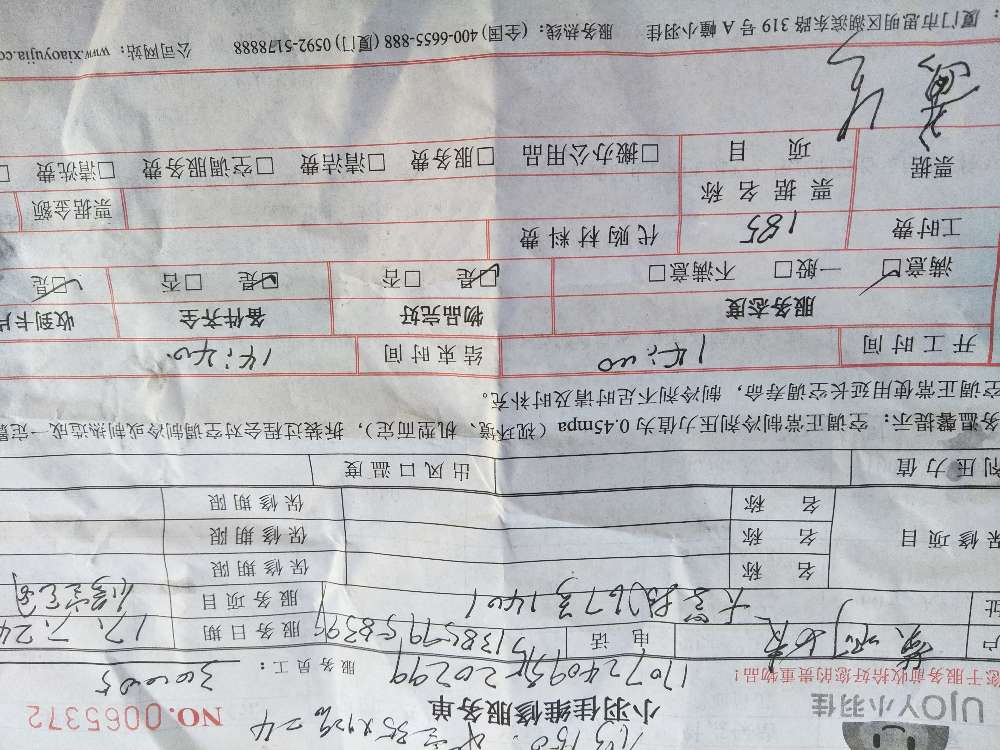 UJOY小羽佳
小羽佳维修服务单
NO.0065372
您于服务前收拾好您的贵重物品！
服务员工：
户
电话
服务日期 17.7.24
址
服务项目
名称
保修期限
保修项目
名称
保修期限
名称
保修期限
剂压力值
出风口温度
务温馨提示：空调正常制冷剂压力值为0.45mpa（视环境、机型而定），拆装过程会对空调制冷或制热造成一定
空调正常使用延长空调寿命，制冷剂不足时请及时补充。
开工时间 14:00 结束时间 14:40
服务态度 物品完好 备件齐全 收到卡片
满意□ 一般□ 不满意□ 是□ 否□ 是□ 否□ 是□
工时费 185 代购材料费
票据 票据名称 票据金额
项目 □搬办公用品 □服务费 □清洁费 □空调服务费 □清洗费 □
：厦门市思明区湖滨东路319号A幢小羽佳 服务热线：(全国)400-6655-888 (厦门)0592-5178888 公司网站：www.xiaoyujia.co